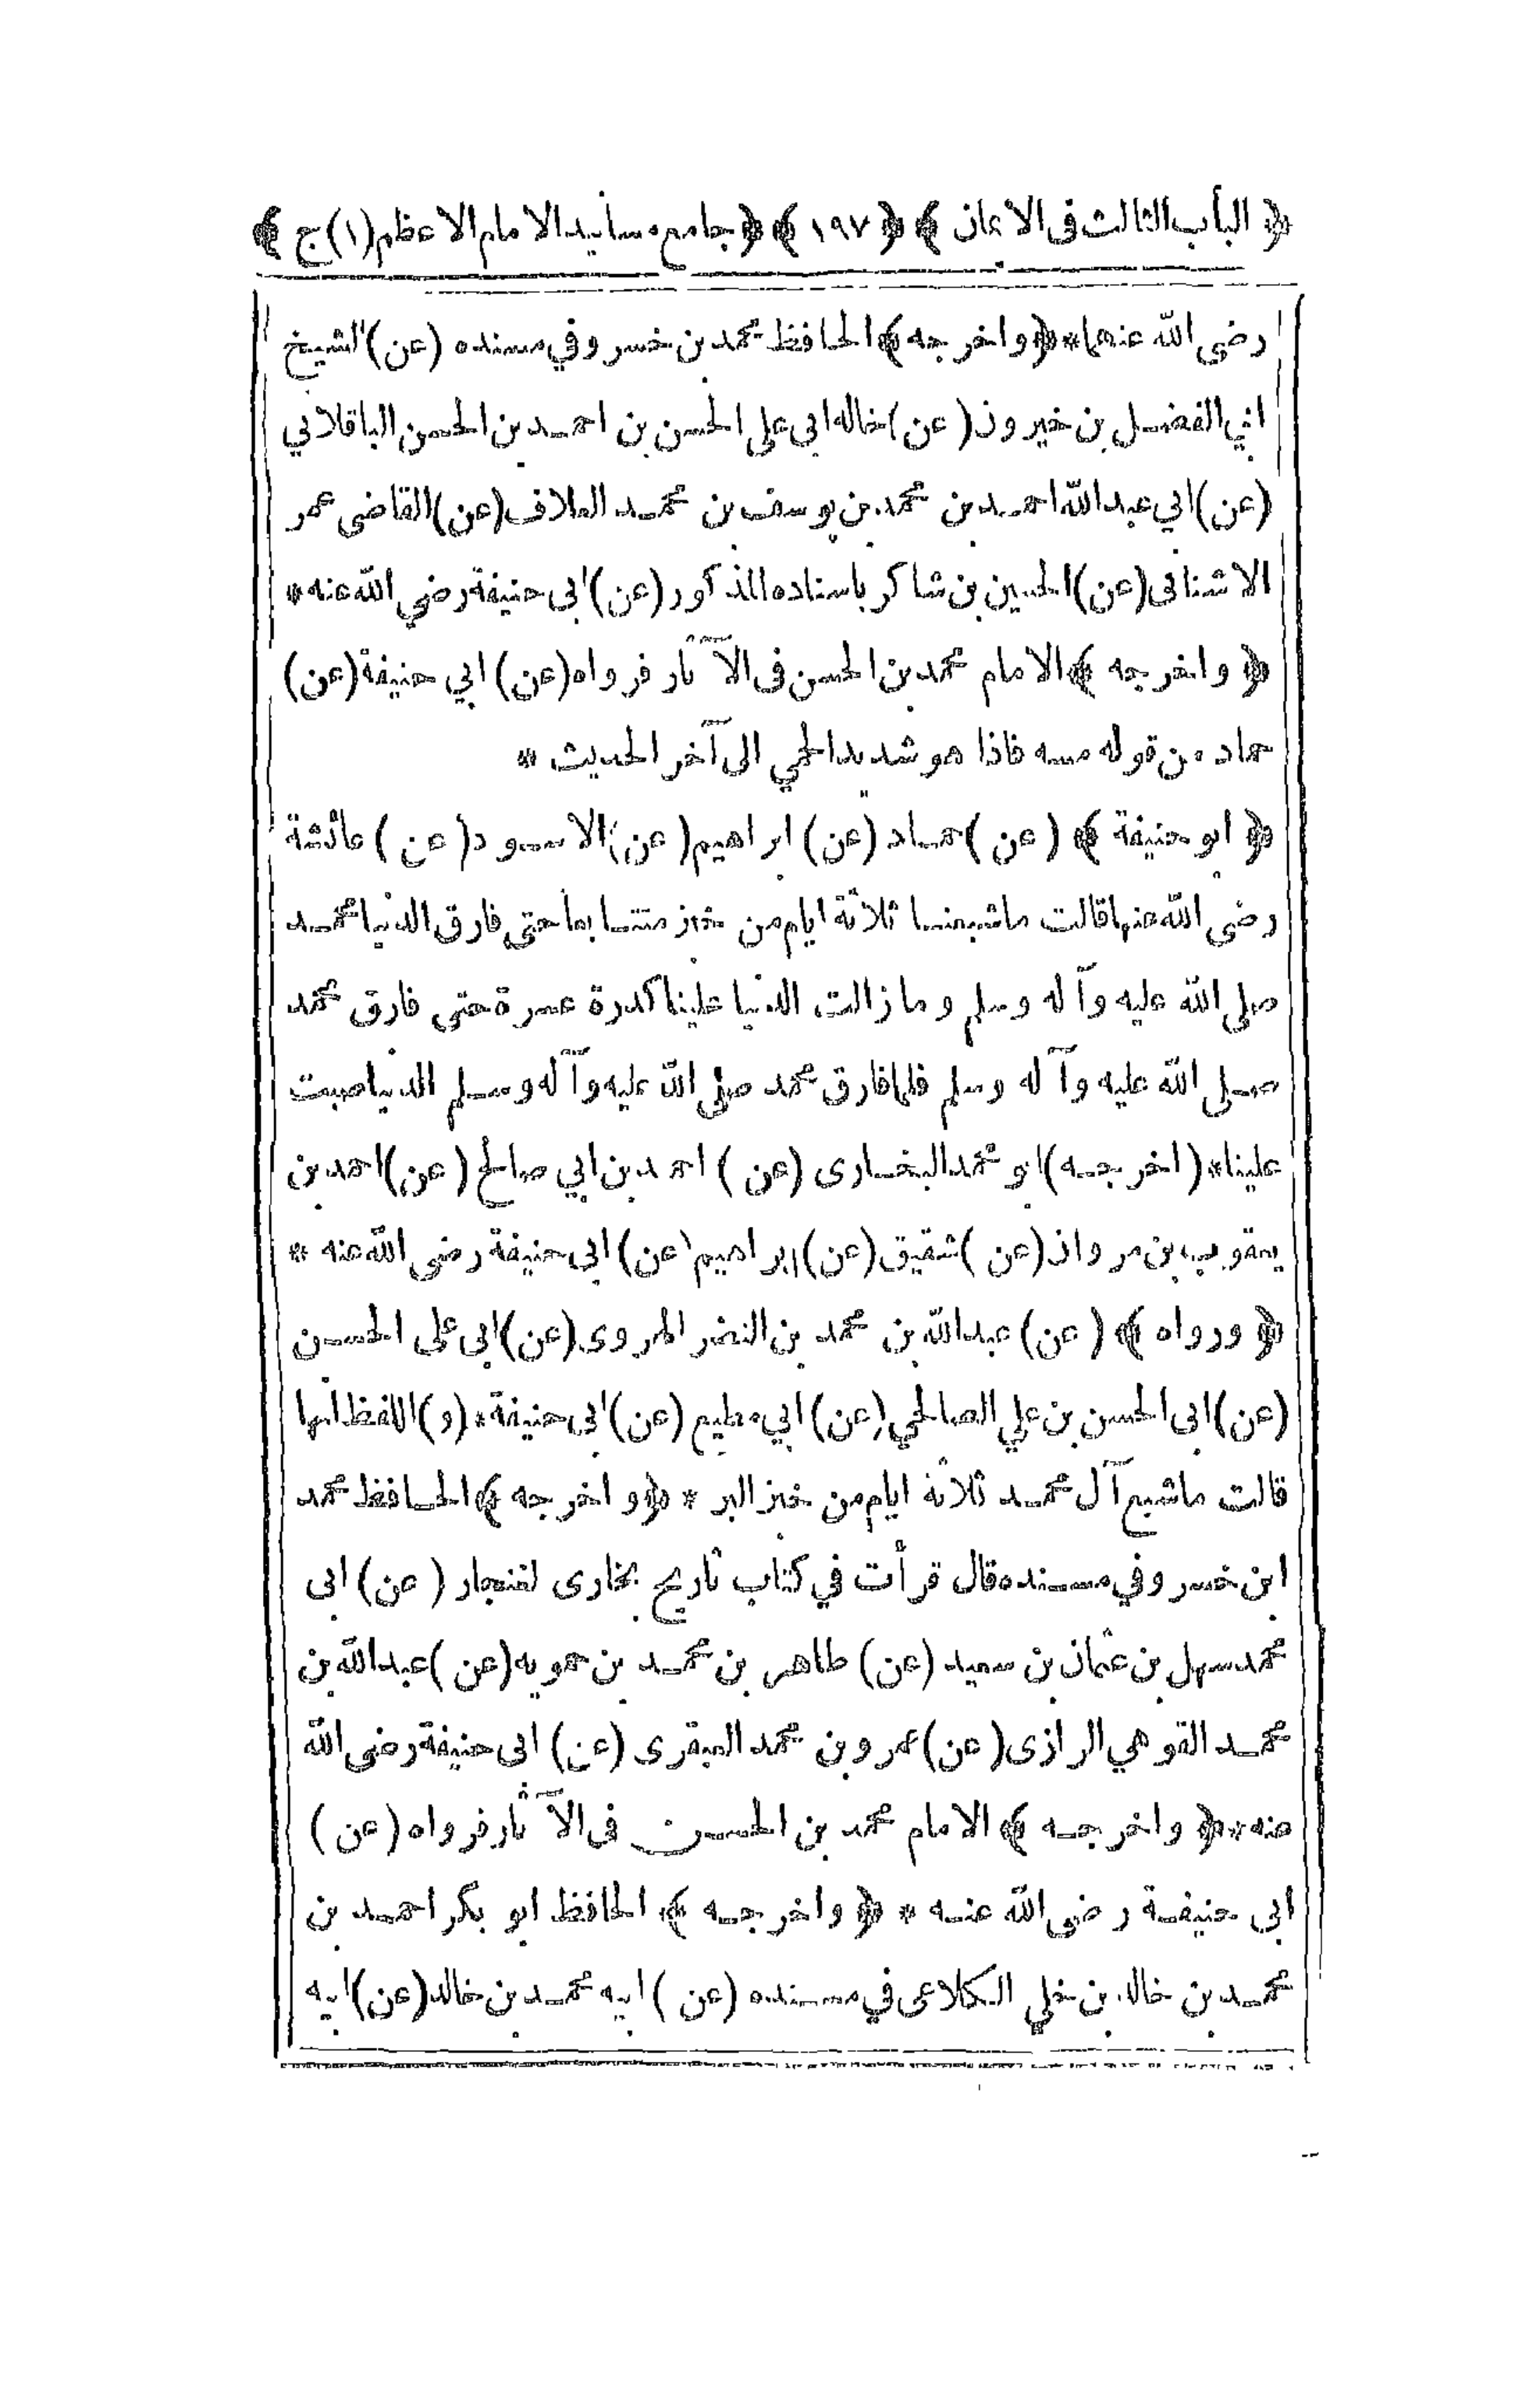 ﴿ الباب الثالث في الايمان ﴾ ﴿ ١٩٧ ﴾ ﴿ جامع مسانيد الامام الاعظم (١) ج ﴾
رضى الله عنهما * ﴿ واخرجه ﴾ الحافظ محمد بن خسرو في مسنده (عن) الشيخ
ابي الفضل بن خيرون (عن) خاله ابى على الحسن بن احمد بن الحسن الباقلاني
(عن) ابي عبد الله احمد بن محمد بن يوسف بن محمد العلاف (عن) القاضى عمر
الاشنانى (عن) الحسين بن شاكر باسناده المذكور (عن) ابى حنيفة رضي الله عنه *
﴿ واخرجه ﴾ الامام محمد بن الحسن فى الآثار فرواه (عن) ابي حنيفة (عن)
حماد من قوله مسه فاذا هو شديد الحمي الى آخر الحديث *
﴿ ابو حنيفة ﴾ (عن) حماد (عن) ابراهيم (عن) الاسود (عن) عائشة
رضى الله عنها قالت ماشبعنا ثلاثة ايام من خبز متتابعا حتى فارق الدنيا محمد
صلى الله عليه وآله وسلم وما زالت الدنيا علينا كدرة عسرة حتى فارق محمد
صلى الله عليه وآله وسلم فلما فارق محمد صلى الله عليه وآله وسلم الدنيا صبت
علينا * (اخرجه) ابو محمد البخارى (عن) احمد بن ابي صالح (عن) احمد بن
يعقوب بن مروان (عن) شقيق (عن) ابراهيم (عن) ابى حنيفة رضى الله عنه *
﴿ ورواه ﴾ (عن) عبد الله بن محمد بن النضر الهروى (عن) ابى على الحسن
(عن) ابى الحسن بن علي الصالحي (عن) ابي مطيع (عن) ابى حنيفة * (و) اللفظ انها
قالت ماشبع آل محمد ثلاثة ايام من خبز البر * ﴿ واخرجه ﴾ الحافظ محمد
ابن خسرو في مسنده قال قرأت في كتاب تاريخ بخارى لغنجار (عن) ابى
محمد سهل بن عثمان بن سعيد (عن) طاهر بن محمد بن حمويه (عن) عبد الله بن
محمد القوهي الرازى (عن) عمرو بن محمد العبقرى (عن) ابى حنيفة رضى الله
عنه * ﴿ واخرجه ﴾ الامام محمد بن الحسن فى الآثار فرواه (عن)
ابى حنيفة رضى الله عنه * ﴿ واخرجه ﴾ الحافظ ابو بكر احمد بن
محمد بن خالد بن خلي الكلاعى في مسنده (عن) ابيه محمد بن خالد (عن) ابيه